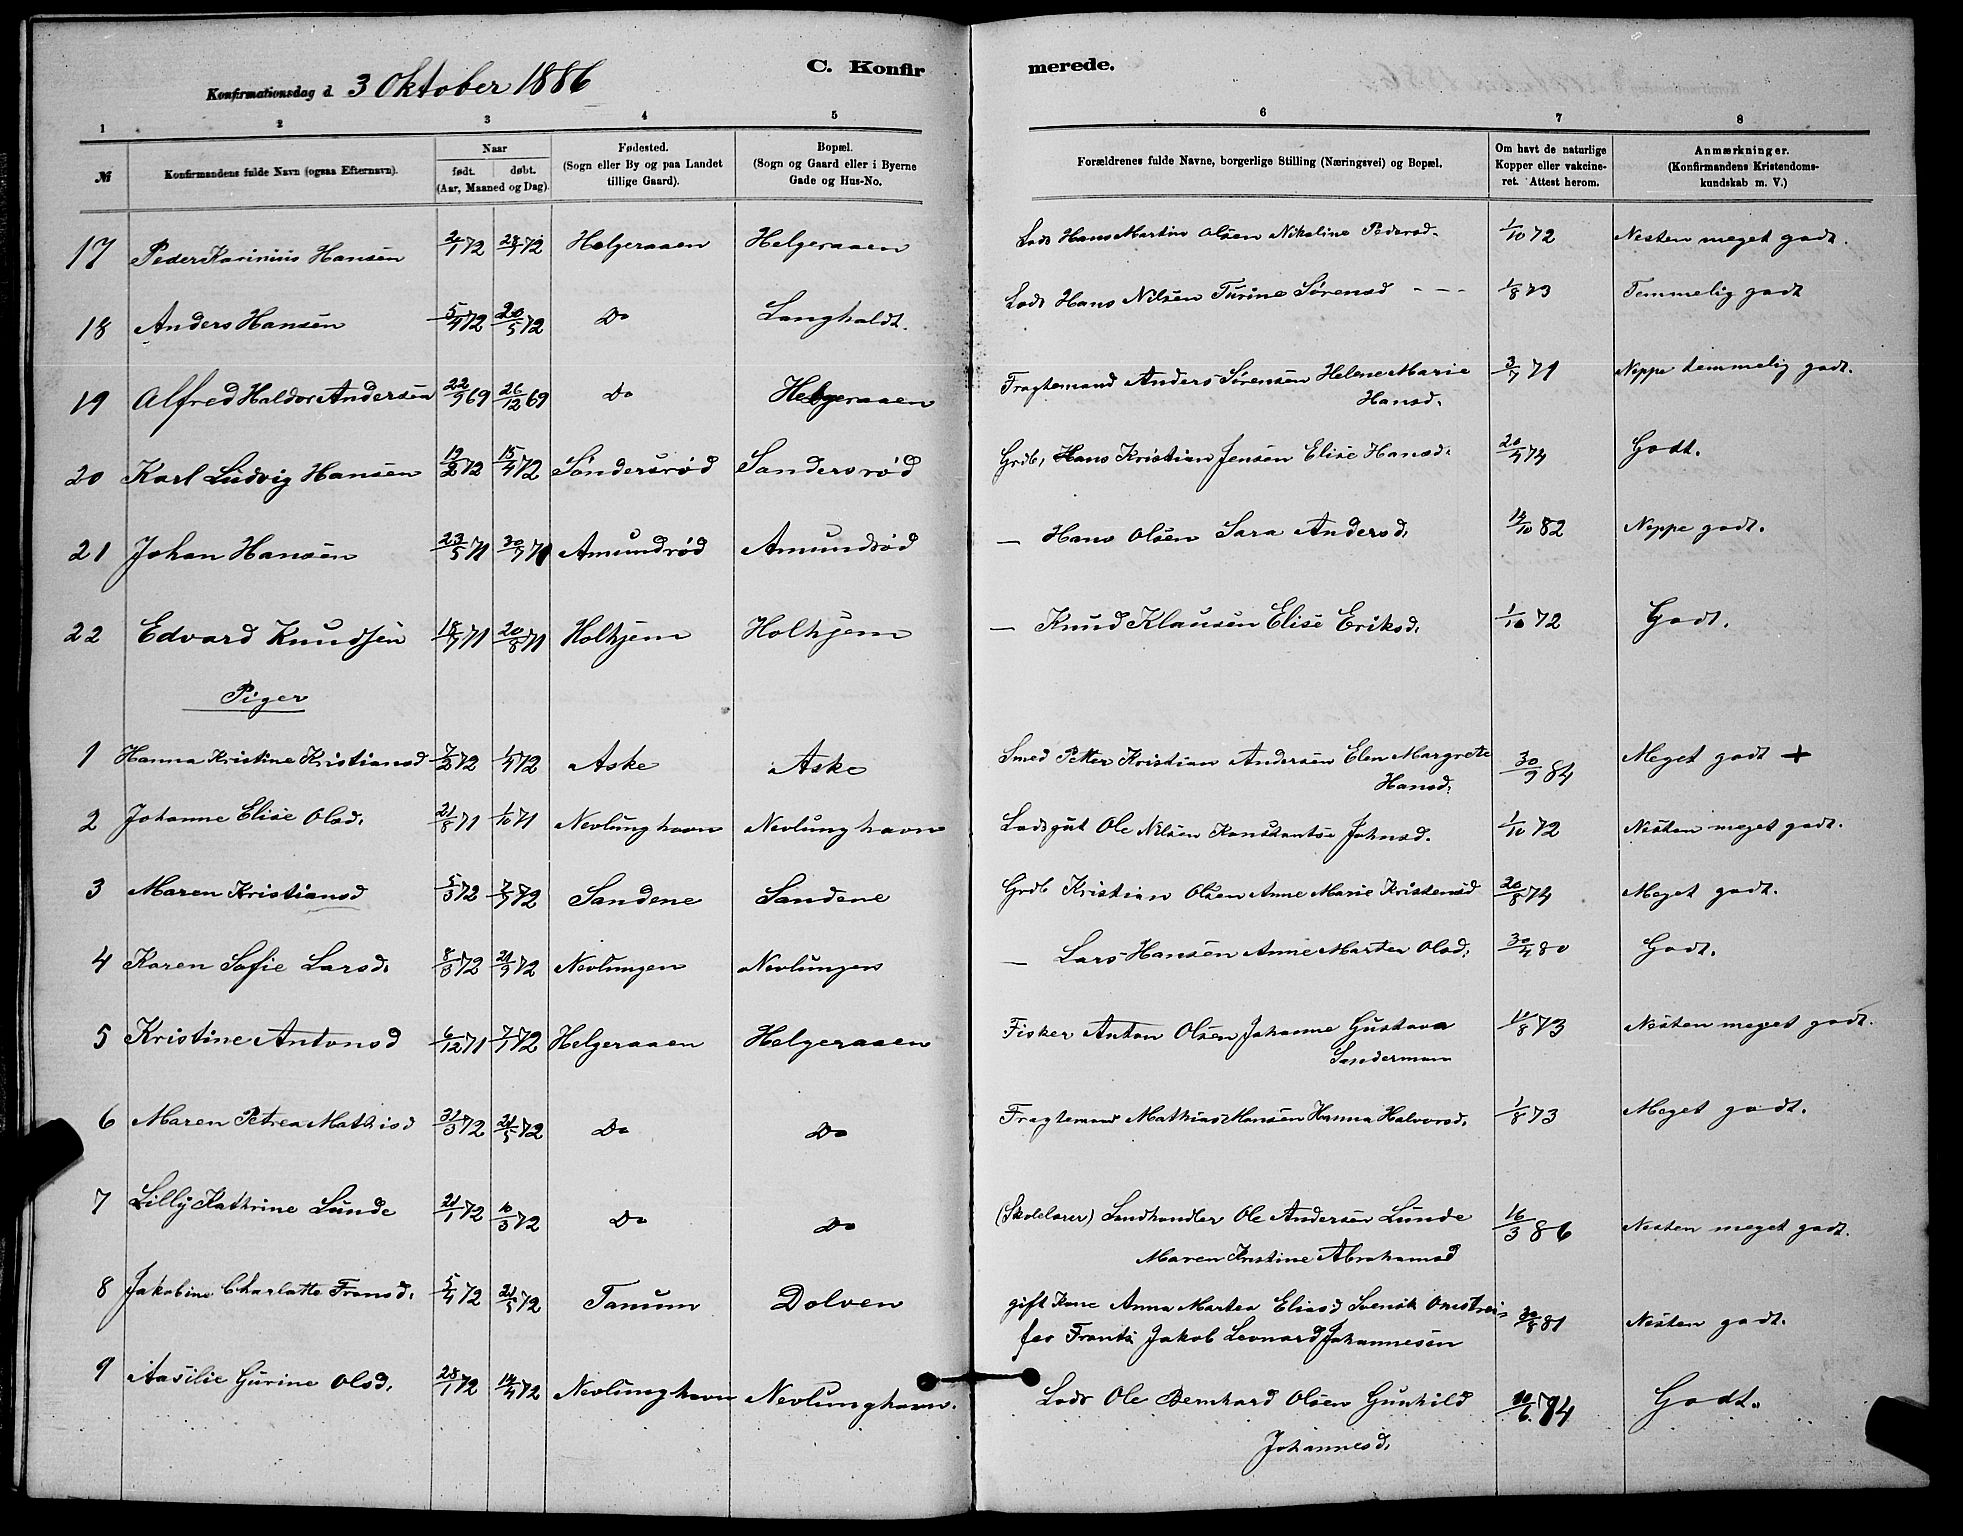 C. Konfirmerede.
Konfirmationsdag d. 3 Oktober 1886
1 2 3 4 5 6 7 8
№ | Konfirmandens fulde Navn (ogsaa Efternavn). | Naar født. døbt. (Aar, Maaned og Dag). | Fødested. (Sogn eller By og paa Landet tillige Gaard). | Bopæl. (Sogn og Gaard eller i Byerne Gade og Hus-No. | Forældrenes fulde Navne, borgerlige Stilling (Næringsvei) og Bopæl. | Om havt de naturlige Kopper eller vakcineret. Attest herom. | Anmærkninger. (Konfirmandens Kristendomskundskab m. V.)
17 Peder Karinius Hansen 20/1 72 28/4 72 Helgeraaen Helgeraaen Lods Hans Martin Olsen Nikoline Pedersd. 1/10 72 Nesten meget godt.
18 Anders Hansen 5/4 72 20/5 72 Do Langholdt. Lods Hans Nilsen Turine Sørensd - - - 1/8 73 Temmelig godt
19 Alfred Haldor Andersen 22/9 69 26/12 69 Do Helgeraaen Fragtemand Anders Sørensen Helene Marie Hansd. 3/7 71 Neppe temmelig godt.
20 Karl Ludvig Hansen 19/2 72 15/4 72 Søndersrød Sandersrød Grdb, Hans Kristian Jensen Elise Hansd. 20/4 74 Godt.
21 Johan Hansen 23/5 71 30/7 71 Amundrød Amundrød — Hans Olsen Sara Andersd. 14/10 82 Neppe godt.
22 Edvard Knudsen 18/7 71 20/8 71 Holtjem Holtjem — Knud Klausen Elise Eriksd. 1/10 72 Godt.
Piger
1 Hanna Kristine Kristiansd 7/2 72 1/4 72 Aske Aske Smed Petter Kristian Andersen Elen Margrete Hansd. 30/9 84 Meget godt +
2 Johanne Elise Olsd. 21/8 71 1/10 71 Nevlunghavn Nevlunghavn Lodsgut Ole Nilsen Konstantse Johnsd. 1/10 72 Nesten meget godt.
3 Maren Kristiansd 5/3 72 7/7 72 Sandene Sandene Grdb Kristian Olsen Anne Marie Kristensd 20/8 74 Meget godt.
4 Karen Sofie Larsd. 8/3 72 21/9 72 Nevlungen Nevlungen — Lars Hansen Anne Martea Olsd. 30/4 80 Godt.
5 Kristine Antonsd 6/12 71 7/7 72 Helgeraaen Helgeraaen Fisker Anton Olsen Johanne Gustava Sandermann 11/8 73 Nesten meget godt.
6 Maren Petrea Mathisd 31/3 72 21/5 72 Do Do Fragtemand Mathias Hansen Hanna Halvorsd. 1/8 73 Meget godt.
7 Lilly Kathrine Lunde 21/1 72 10/3 72 Do Do (Skolelærer) Landhandler Ole Andersen Lunde Maren Kristine Abrahamsd 16/3 86 Nesten meget godt.
8 Jakobine Charlotte Fransd. 5/4 72 21/5 72 Tanum Dolven gift Kone Anna Martea Eliasd Svensk Omstreifer Frants Jakob Leonard Johannesen 30/8 81 Nesten godt.
9 Aasilie Gurine Olsd. 28/1 72 14/4 72 Nevlunghavn Nevlunghavn. Lods Ole Bernhard Olsen Gunhild Johannesd. 10/6 74 Godt.